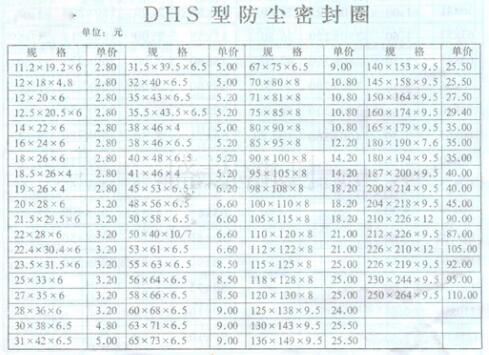 DHS型防尘密封圈
单位：元
规 格 单价 规 格 单价 规 格 单价 规 格 单价
11.2×19.2×6 2.80 31.5×39.5×6.5 5.00 67×75×6.5 9.00 140×153×9.5 25.50
12×18×4.8 2.80 32×40×6.5 5.00 70×80×8 10.80 145×158×9.5 25.50
12×20×6 2.80 35×43×6.5 5.20 71×81×8 10.80 150×164×9.5 27.50
12.5×20.5×6 2.80 35.5×43.5×6.5 5.20 75×85×8 10.80 160×174×9.5 29.40
14×22×6 2.80 38×46×4 5.00 80×90×8 10.80 165×179×9.5 35.00
16×24×6 2.80 38×46×6.5 5.20 85×95×8 12.20 180×190×7.6 35.00
18×26×6 2.80 40×48×6.5 5.20 90×100×8 14.20 180×194×9.5 35.00
18.5×26×4 2.80 41×46×4 5.20 95×105×8 14.20 187×200×9.5 40.00
19×26×4 2.80 45×53×6.5 6.20 98×108×8 18.20 200×214×9.5 40.00
20×28×6 3.20 48×56×6.5 6.60 100×110×8 18.20 204×218×9.5 45.00
21.5×29.5×6 3.20 50×58×6.5 6.60 105×115×8 18.20 210×226×12 90.00
22×28×6 3.20 50×40×10/7 6.60 110×120×8 21.00 212×226×9.5 87.00
22.4×30.4×6 3.20 53×61×6.5 6.60 112×122×8 21.00 226×210×12 105.00
23.5×31.5×6 3.20 55×63×6.5 8.50 115×125×8 25.00 226×219×9.5 92.00
25×33×6 3.20 56×64×6.5 8.50 118×128×8 25.00 230×244×9.5 95.00
27×35×6 3.20 58×66×6.5 8.50 120×130×8 25.00 250×264×9.5 110.00
28×36×6 3.20 60×68×6.5 9.00 125×138×9.5 24.00
30×38×6.5 4.80 63×71×6.5 9.00 130×143×9.5 25.50
31×42×6.5 5.00 65×73×6.5 9.00 136×149×9.5 25.50